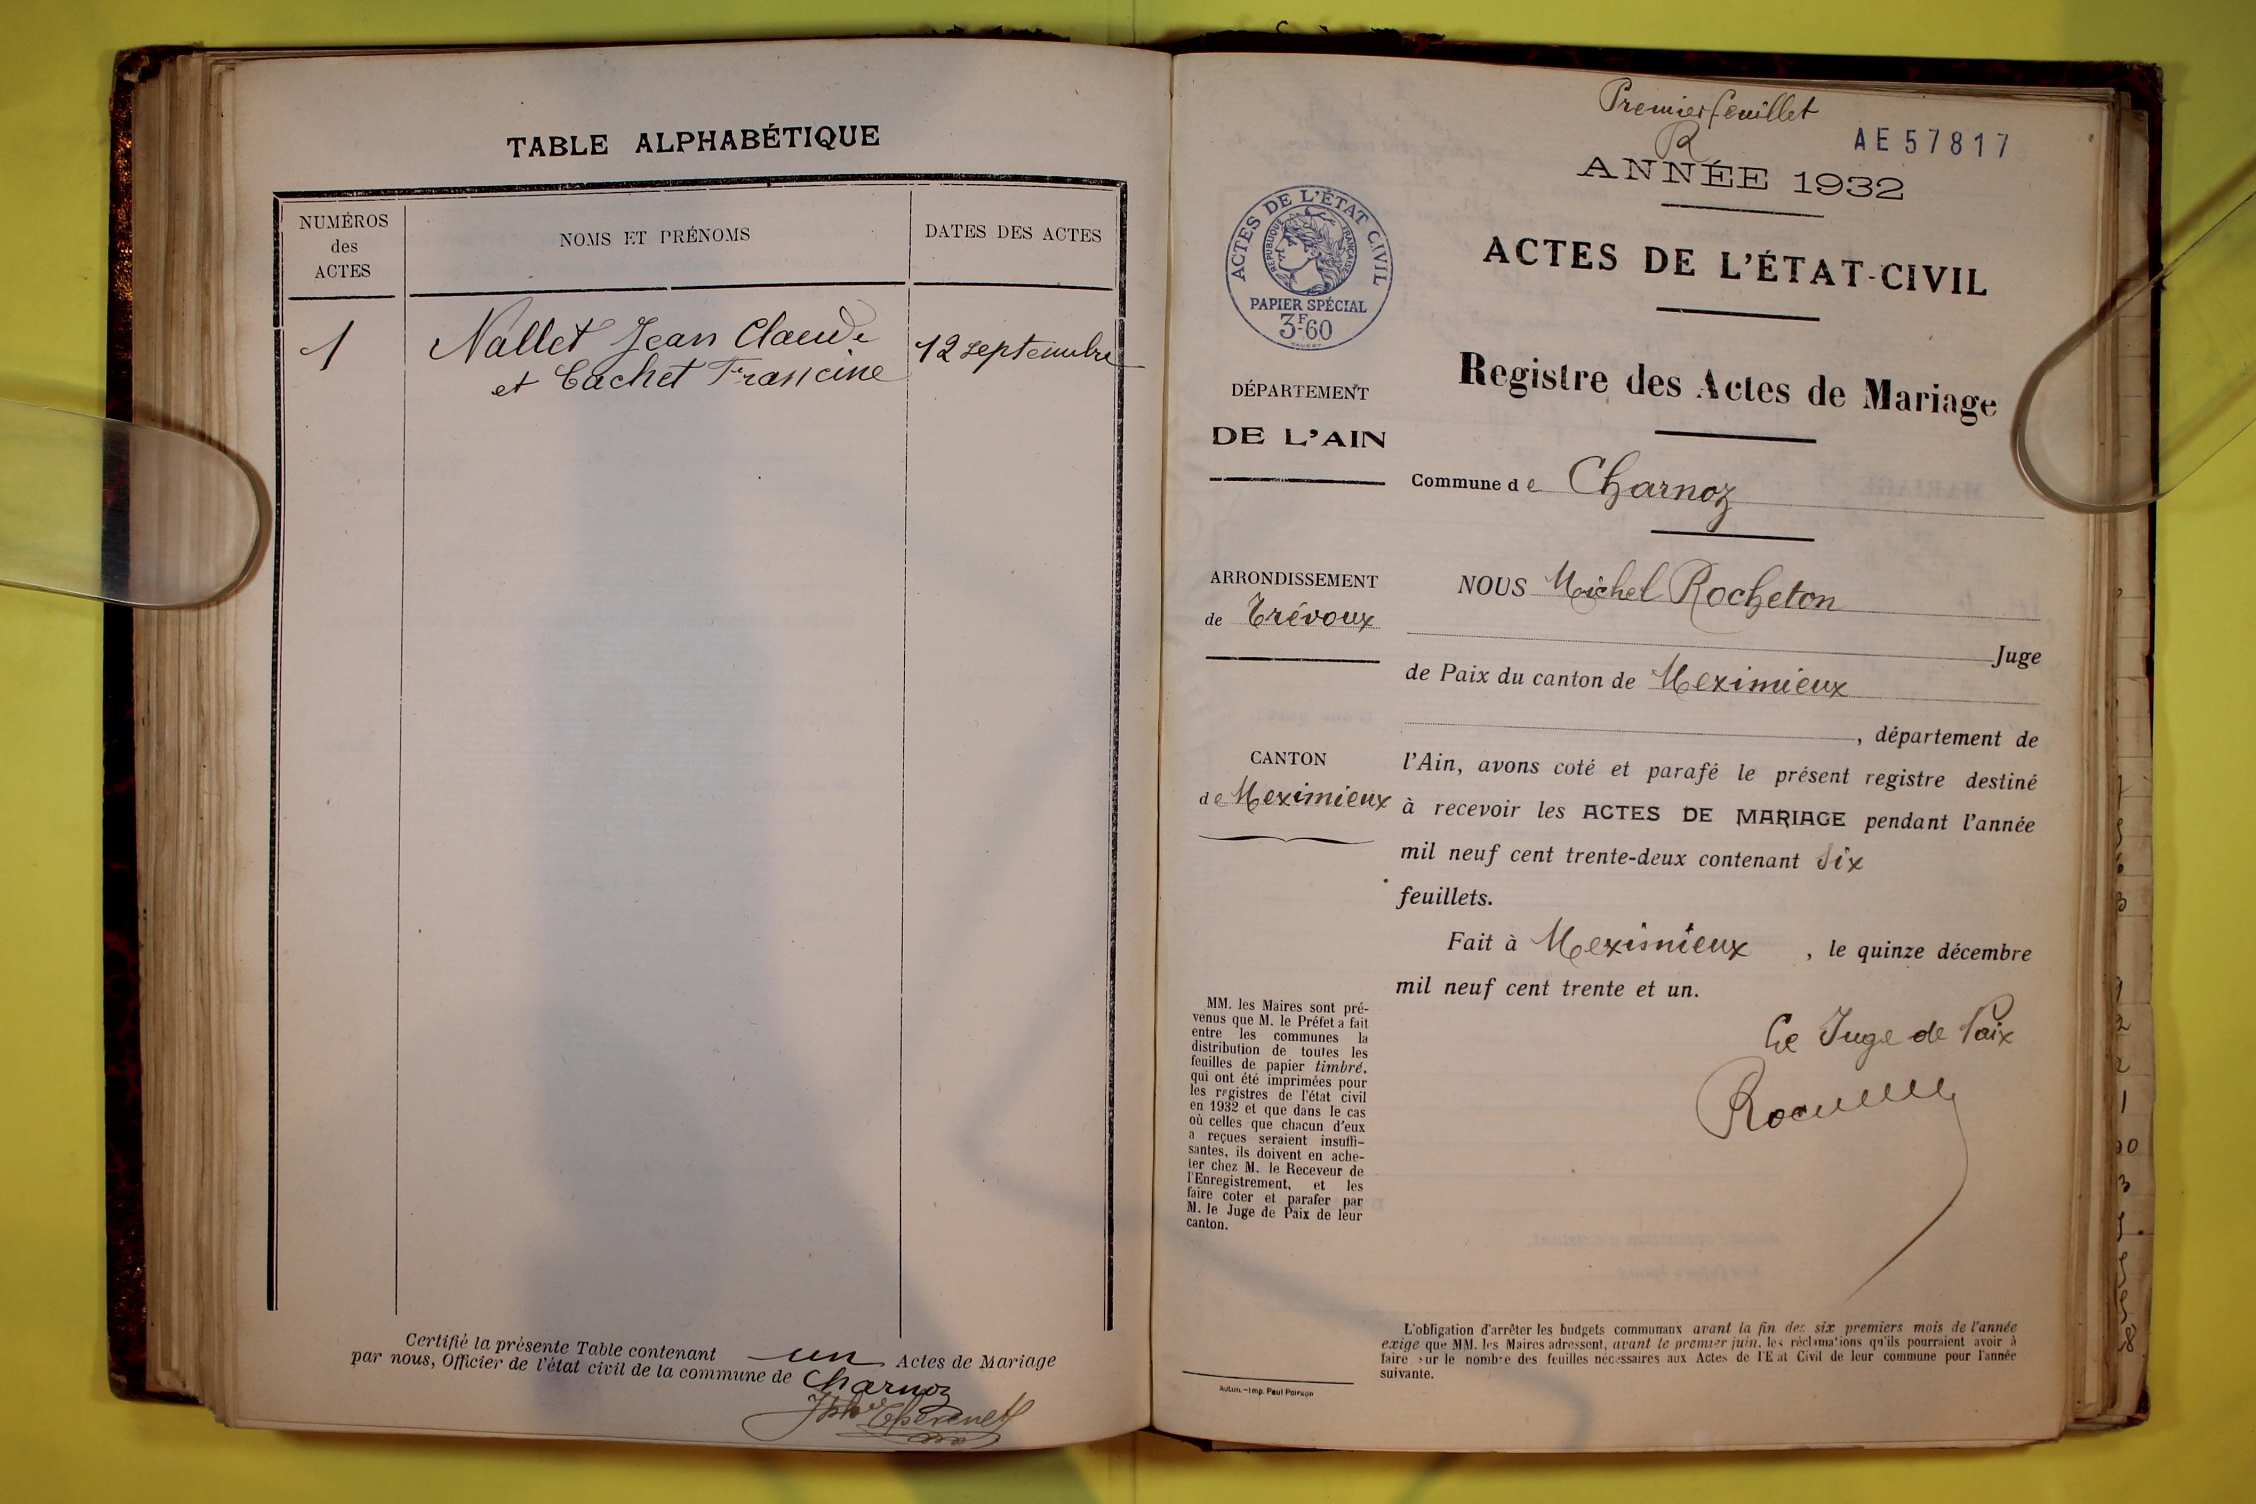 TABLE ALPHABÉTIQUE
NUMÉROS
des
ACTES
NOMS ET PRÉNOMS
DATES DES ACTES
1
Nallet Jean Claude
et Cachet Francine
12 septembre
Certifié la présente Table contenant un Actes de Mariage
par nous, Officier de l'état civil de la commune de Charnoz
Premier feuillet
R
AE 57817
ANNÉE 1932
ACTES DE L'ÉTAT CIVIL
RÉPUBLIQUE FRANÇAISE
PAPIER SPÉCIAL
3F.60
ACTES DE L'ÉTAT-CIVIL
Registre des Actes de Mariage
DÉPARTEMENT
DE L'AIN
Commune de Charnoz
ARRONDISSEMENT
de Trévoux
CANTON
de Meximieux
NOUS Michel Rocheton
Juge
de Paix du canton de Meximieux
, département de
l'Ain, avons coté et parafé le présent registre destiné
à recevoir les ACTES DE MARIAGE pendant l'année
mil neuf cent trente-deux contenant Six
feuillets.
Fait à Meximieux , le quinze décembre
mil neuf cent trente et un.
Le Juge de Paix
MM. les Maires sont pré-
venus que M. le Préfet a fait
entre les communes la
distribution de toutes les
feuilles de papier timbré.
qui ont été imprimées pour
les registres de l'état civil
en 1932 et que dans le cas
où celles que chacun d'eux
a reçues seraient insuffi-
santes, ils doivent en ache-
ter chez M. le Receveur de
l'Enregistrement, et les
faire coter et parafer par
M. le Juge de Paix de leur
canton.
L'obligation d'arrêter les budgets communaux avant la fin des six premiers mois de l'année
exige que MM. les Maires adressent, avant le premier juin, les réclamations qu'ils pourraient avoir à
faire sur le nombre des feuilles nécessaires aux Actes de l'Etat Civil de leur commune pour l'année
suivante.
Autun.-Imp. Paul Poirson